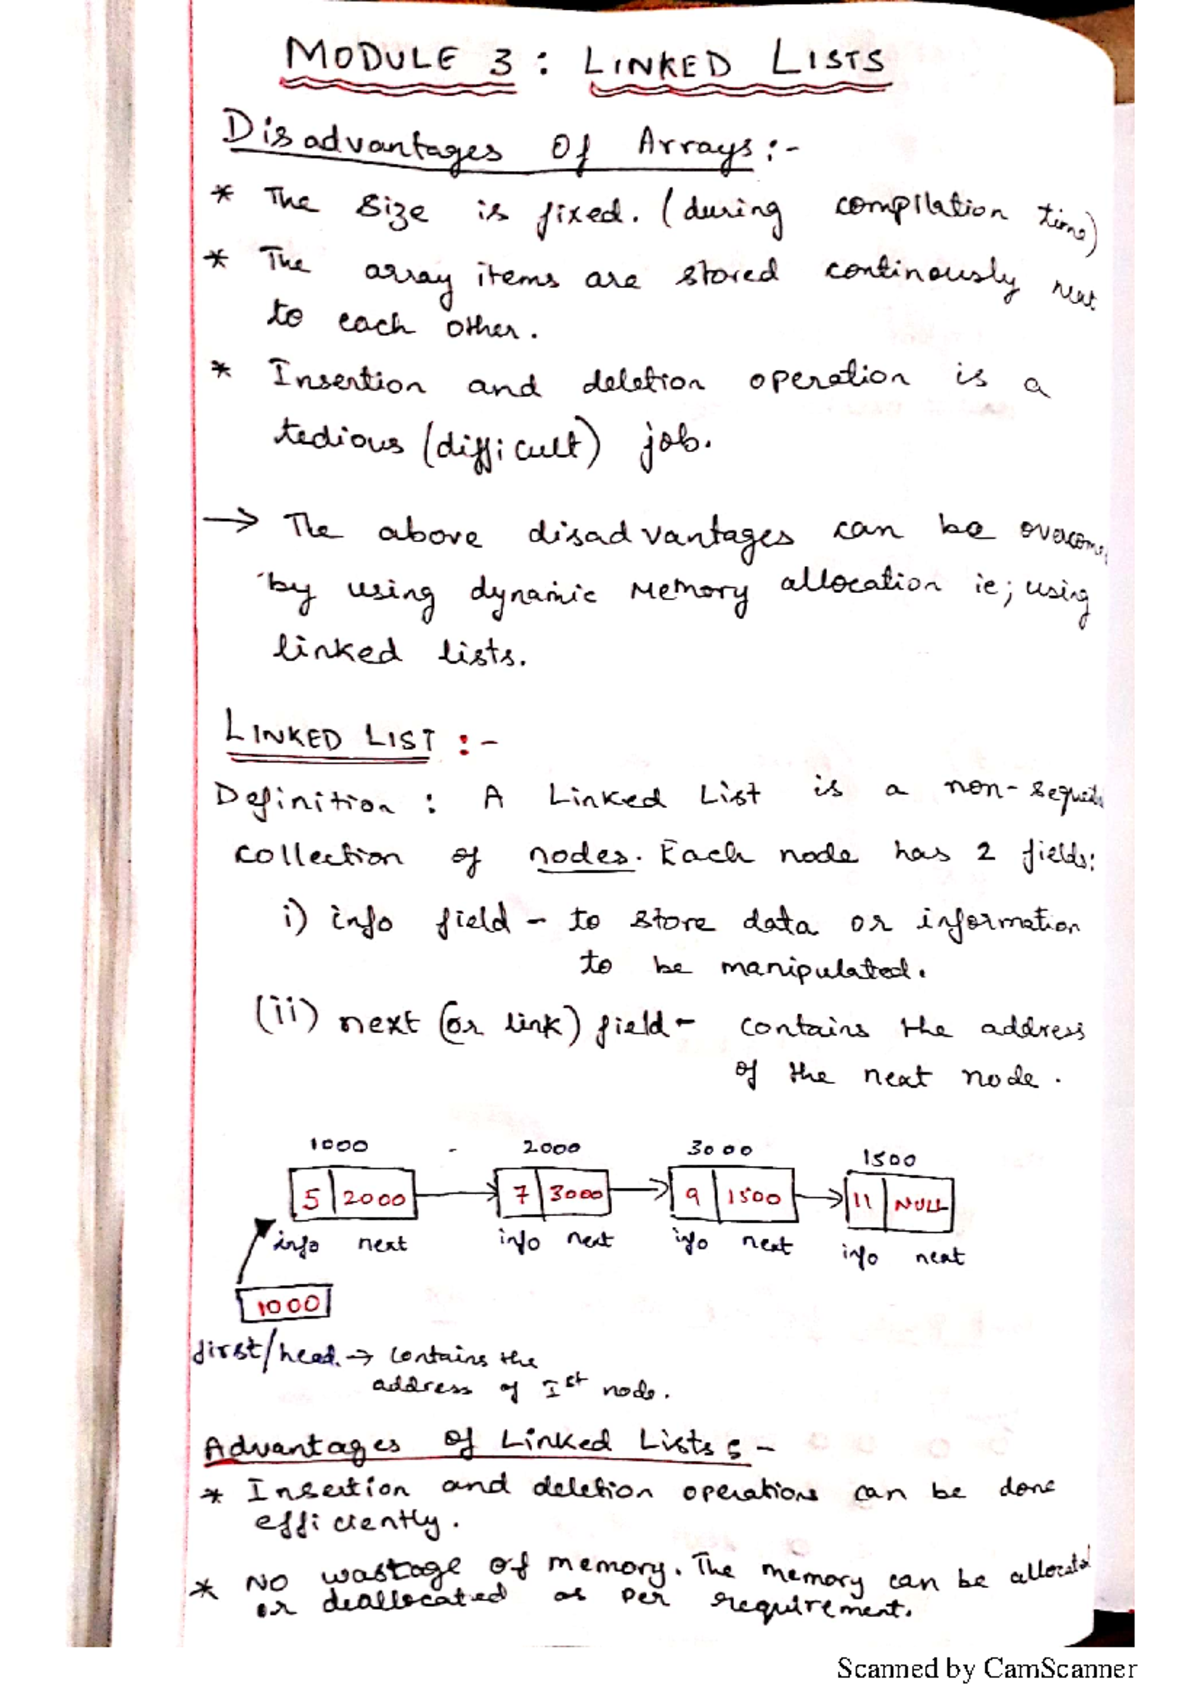 MODULE 3 : LINKED LISTS
Disadvantages Of Arrays :-
* The size is fixed. (during compilation time)
* The array items are stored continously next
to each other.
* Insertion and deletion operation is a
tedious (difficult) job.
→ The above disadvantages can be overcome
by using dynamic memory allocation ie; using
linked lists.
LINKED LIST :-
Definition : A Linked List is a non-
collection of nodes. Each node has 2 fields:
i) info field - to store data or information
to be manipulated.
(ii) next (or link) field - contains the address
of the next node.
1000 2000 3000 1500
5 2000 7 3000 9 1500 11 NULL
info next info next info next info next
1000
first/head → contains the
address of Ist node.
Advantages Of Linked Lists :-
* Insertion and deletion operations can be done
efficiently.
* No wastage of memory. The memory can be allocated
or deallocated as per requirement.
Scanned by CamScanner